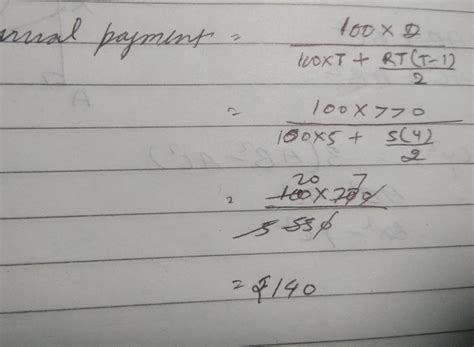 payment = 100 x D / 100xT + RT(T-1) / 2
= 100 x 770 / 100x5 + 5(4) / 2
= 20 7 / 100 x 770 / 5 550
= ₹140